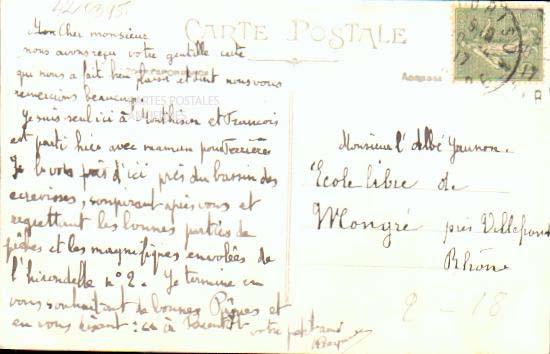 CARTE POSTALE
CORRESPONDANCE
ADRESSE
Mon Cher monsieur
nous avons reçu votre gentille carte
qui nous a fait bien plaisir et dont nous vous
remercions beaucoup
CARTES POSTALES
Je suis seul ici à et François
est parti hier avec maman pour Ferrières
Je vous d'ici près du bassin des
écrevisses, soupirant après vous et
regrettant les bonnes parties de
pêches et les magnifiques envolées de
l'hirondelle n° 2. Je termine en
vous souhaitant de bonnes Pâques et
en vous disant : à bientôt
votre petit ami
Monsieur l'Abbé
Ecole libre de
Mongré près Villefranche
Rhône
2 - 18